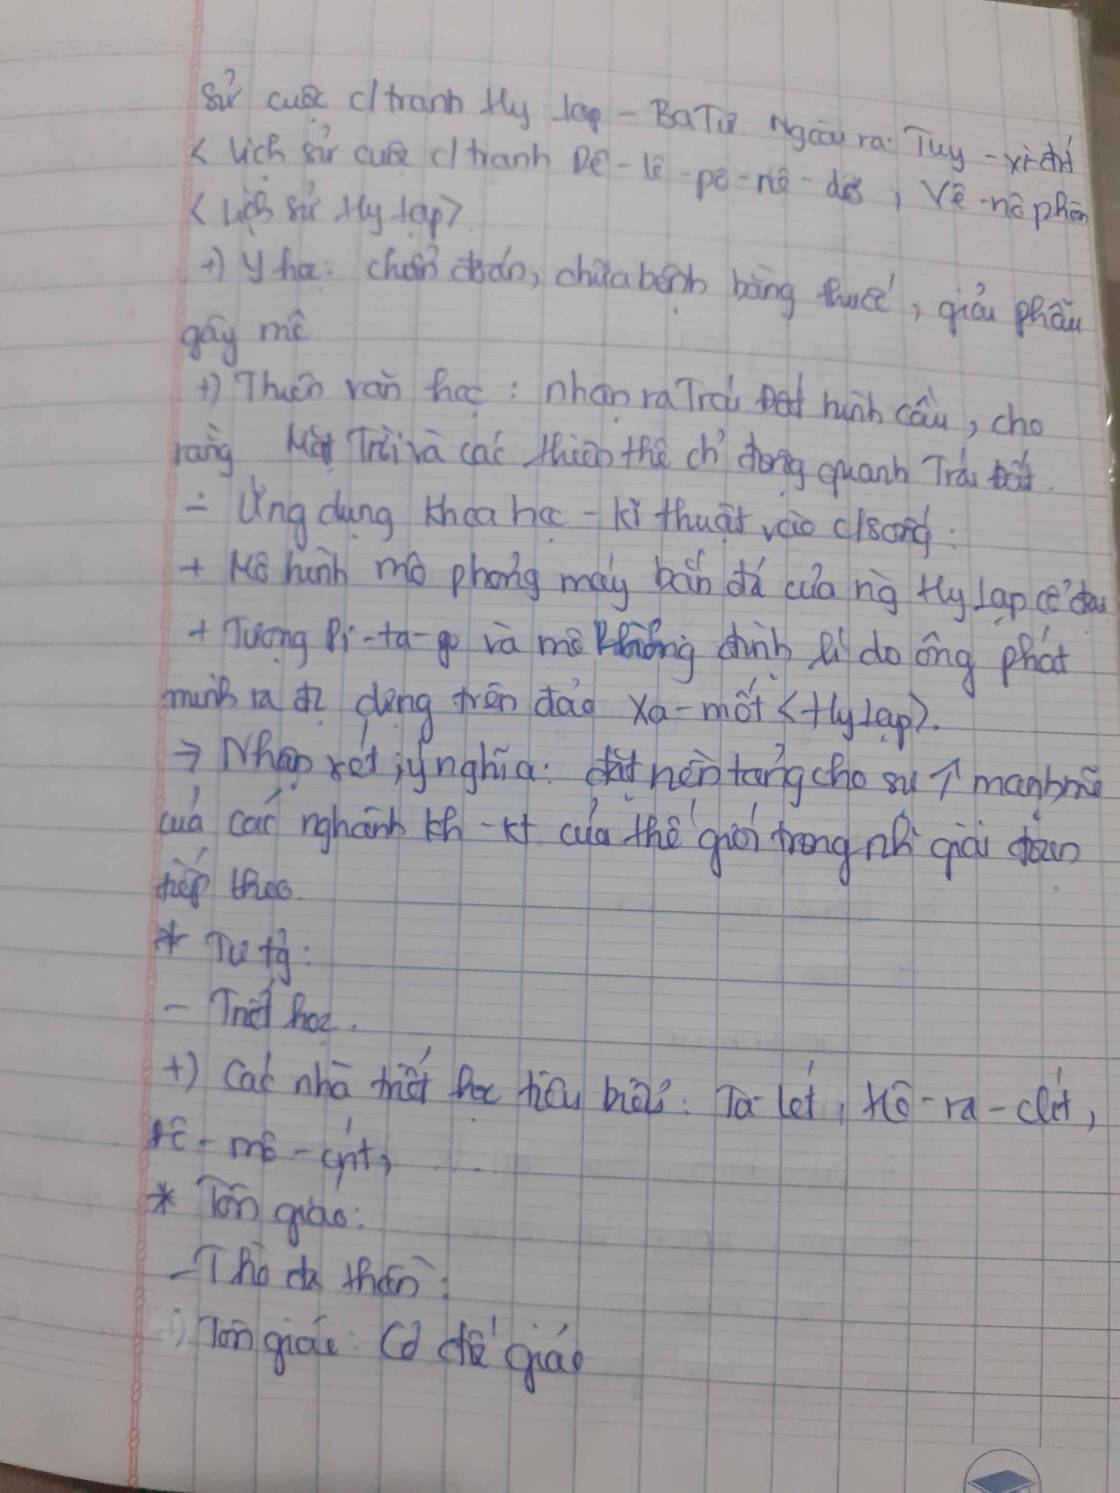 Sử cuộc c/tranh Hy Lạp - Ba Tư Ngoài ra: Tuy - xi đít
< Lịch sử cuộc c/tranh Pê - lê - pô - nê - dơ, Vê - nô phôn
< Lịch sử Hy Lạp>
+) Y học: chuẩn đoán, chữa bệnh bằng thuốc, giải phẫu
gây mê
+) Thiên văn học: nhận ra Trái Đất hình cầu, cho
rằng Mặt Trời và các thiên thể ch' động quanh Trái Đất.
- Ứng dụng khoa học - kĩ thuật vào c/sống:
+ Mô hình mô phỏng máy bắn đá của ng Hy Lạp cổ đại
+ Tượng Pi-ta-go và mô phỏng định lí do ông phát
minh ra đc dựng trên đảo Xa-mốt <Hy Lạp>.
→ Nhận xét, ý nghĩa: đặt nền tảng cho sự ↑ mạnh mẽ
của các nghành kh - kt của thế giới trong nh~ giai đoạn
tiếp theo.
* Tư tg:
- Triết học.
+) Các nhà triết học tiêu biểu: Ta-lét, Hê-ra-clít,
mô-crít,
* Tôn giáo:
- Thờ đa thần:
+) Tôn giáo: Cơ đốc giáo